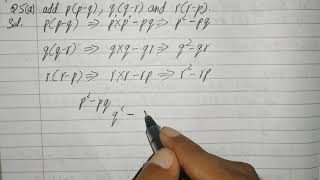 Q.5(a) add p(p-q), q(q-r) and r(r-p).
Sol. p(p-q) ⇒ p×p-pq ⇒ p²-pq
q(q-r) ⇒ q×q-qr ⇒ q²-qr
r(r-p) ⇒ r×r-rp ⇒ r²-rp
p²-pq
q²-